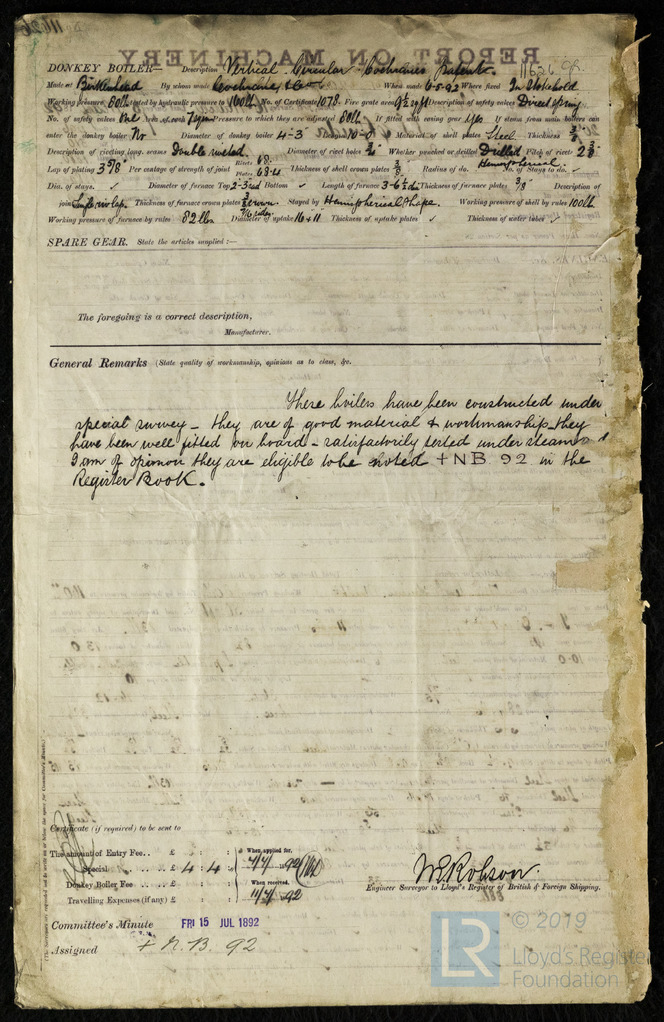 REPORT ON MACHINERY
11626
DONKEY BOILER— Description Vertical Circular Cochrans Patent.
Made at Birkenhead By whom made Cochrane & Co When made 6-5-92 Where fixed In Stokehold
Working pressure 80lb tested by hydraulic pressure to 160lb No. of Certificate 1078 Fire grate area Description of safety valves Direct spring
No. of safety valves One area of each Pressure to which they are adjusted 80lb If fitted with easing gear yes If steam from main boilers can
enter the donkey boiler No Diameter of donkey boiler 4-3" Length 10-0 Material of shell plates Steel Thickness
Description of riveting long. seams Double riveted Diameter of rivet holes Whether punched or drilled Drilled Pitch of rivets 2
Lap of plating 3 5/8" Per centage of strength of joint Rivets 68. Plates 68.4 Thickness of shell crown plates 3/8 Radius of do. Hemispherical. No. of Stays to do. ✓
Dia. of stays. ✓ Diameter of furnace Top Bottom ✓ Length of furnace Thickness of furnace plates 3/8" Description of
joint Single riv lap Thickness of furnace crown plates Stayed by Hemispherical Shape. Working pressure of shell by rules 100lb
Working pressure of furnace by rules 82 lbs Diameter of uptake Thickness of uptake plates ✓ Thickness of water tubes ✓
SPARE GEAR. State the articles supplied:—
The foregoing is a correct description,
Manufacturer.
General Remarks (State quality of workmanship, opinions as to class, &c.
These boilers have been constructed under
special survey – they are of good material & workmanship they
have been well fitted on board – satisfactorily tested under steam &
I am of opinion they are eligible to be noted + NB. 92 in the
Register Book.
Certificate (if required) to be sent to
The amount of Entry Fee.. £ : :
Special .. .. £ 4 : 4 :
Donkey Boiler Fee .. .. £ : :
Travelling Expenses (if any) £ : :
When applied for,
92
When received,
92
W. Robson.
Engineer Surveyor to Lloyd's Register of British & Foreign Shipping.
Committee's Minute FRI 15 JUL 1892
Assigned + N.B. 92
LR
© 2019
Lloyd's Register
Foundation